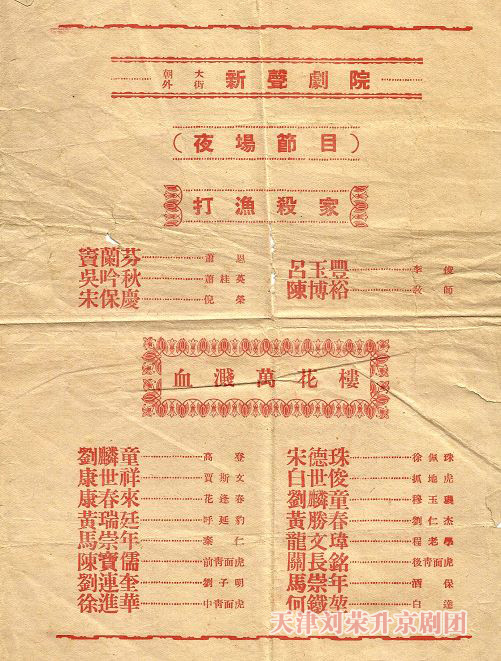 朝外大街 新聲劇院
（夜場節目）
打漁殺家
竇蘭芬 蕭恩
吳吟秋 蕭桂英
宋保慶 倪榮
呂玉豐 李俊
陳博裕 教師
血濺萬花樓
劉麟童 高登
康世祥 賈斯文
康春來 花逢春
黃瑞廷 呼延豹
馬崇年 秦仁
陳寶儒 前靑面虎
劉連奎 劉子明
徐進華 中靑面虎
宋德珠 徐佩珠
白世俊 抓地虎
劉麟童 穆玉璣
黃勝春 劉仁杰
龍文瑋 程老學
關長銘 後靑面虎
馬崇年 酒保
何鐵堃 白達
天津刘荣升京剧团